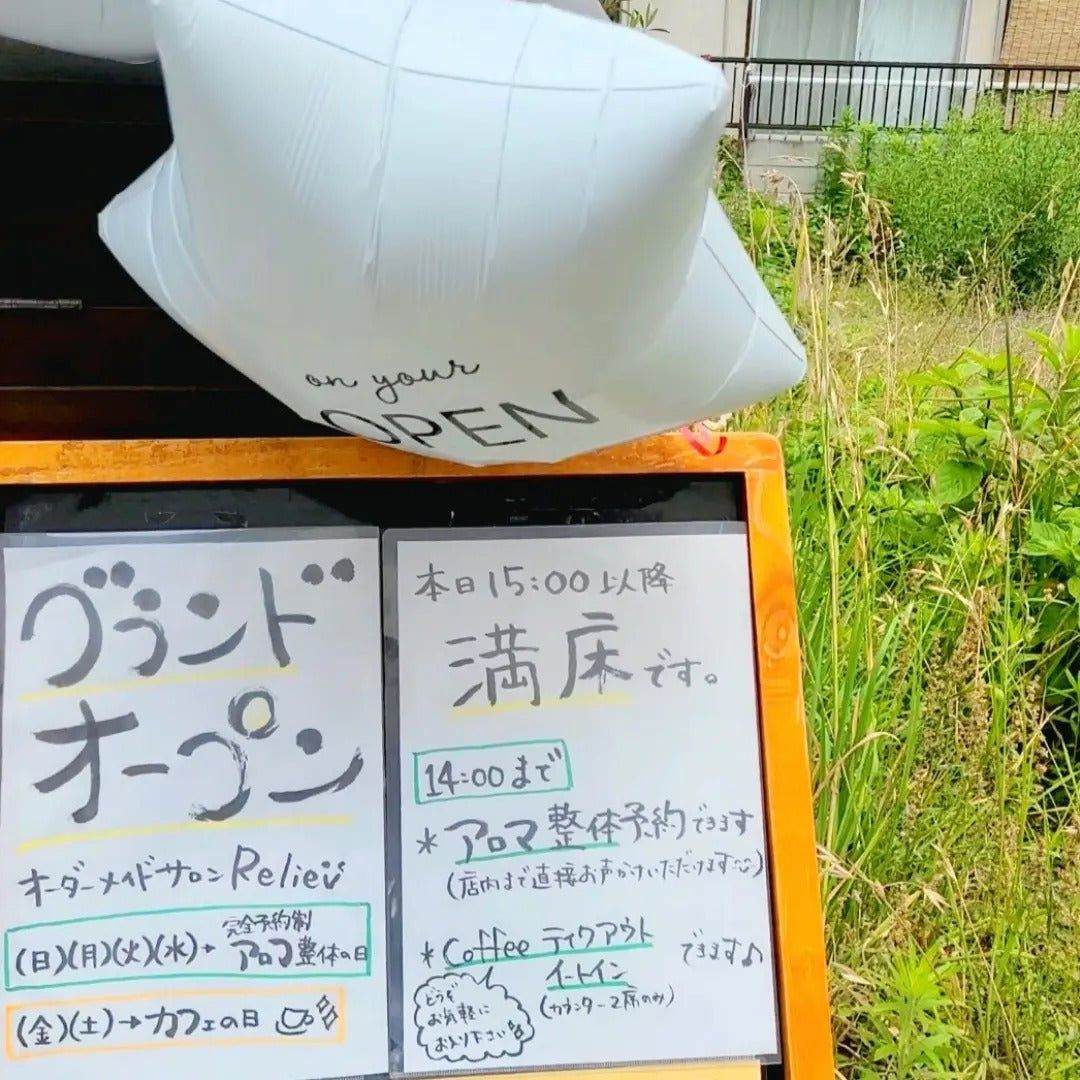 on your
OPEN
グランド
オープン
オーダーメイドサロン Relief
(日)(月)(火)(水)→ 完全予約制
アロマ整体の日
(金)(土)→カフェの日
本日15:00以降
満床です。
14:00まで
*アロマ整体予約できます
(店内まで直接お声かけいただけます)
*Coffee テイクアウト
イートイン
できます♪
(カウンター2席のみ)
どうぞ
お気軽に
お入り下さい